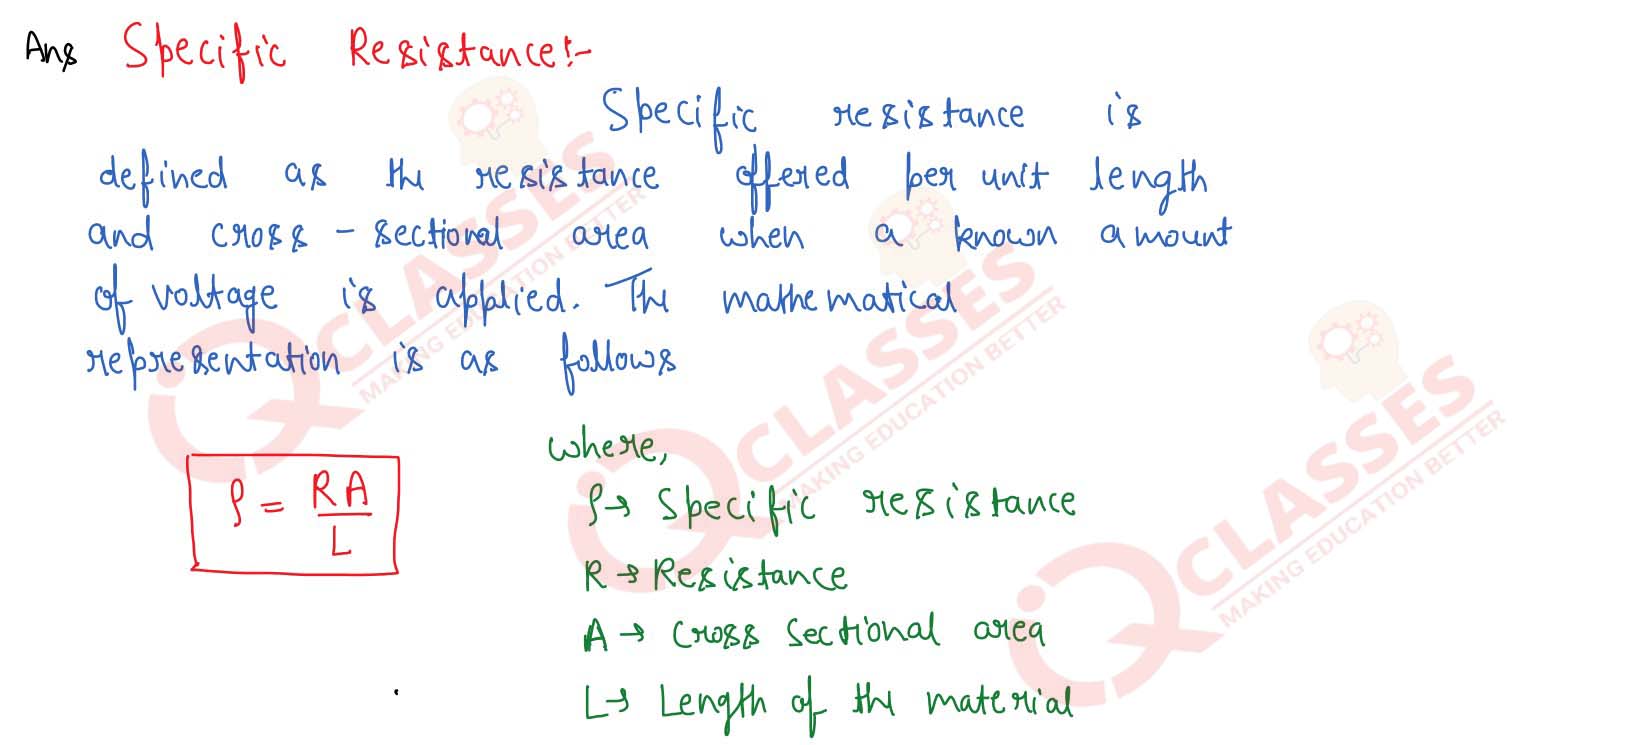 Ans Specific Resistance:-
Specific resistance is
defined as the resistance offered per unit length
and cross-sectional area when a known amount
of voltage is applied. The mathematical
representation is as follows
where,
ρ = RA/L
ρ→ Specific resistance
R→ Resistance
A→ Cross Sectional area
L→ Length of the material
iQ CLASSES
MAKING EDUCATION BETTER
iQ CLASSES
MAKING EDUCATION BETTER
iQ CLASSES
MAKING EDUCATION BETTER